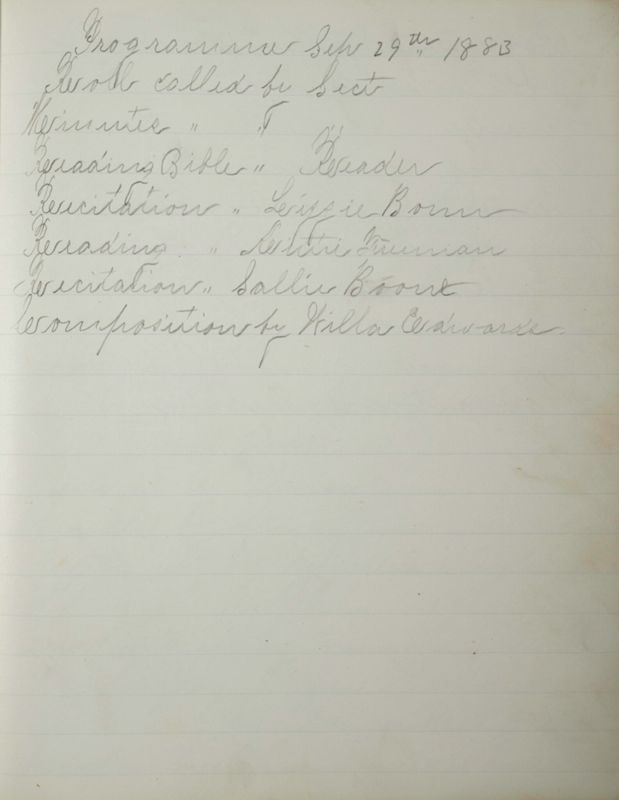 Programme Sep 29th 1883
Roll called by Sect
Minutes " "
Reading Bible " Reader
Recitation " Lizzie Bonn
Reading " Freeman
Recitation " Sallie Boone
Composition by Willa Edwards